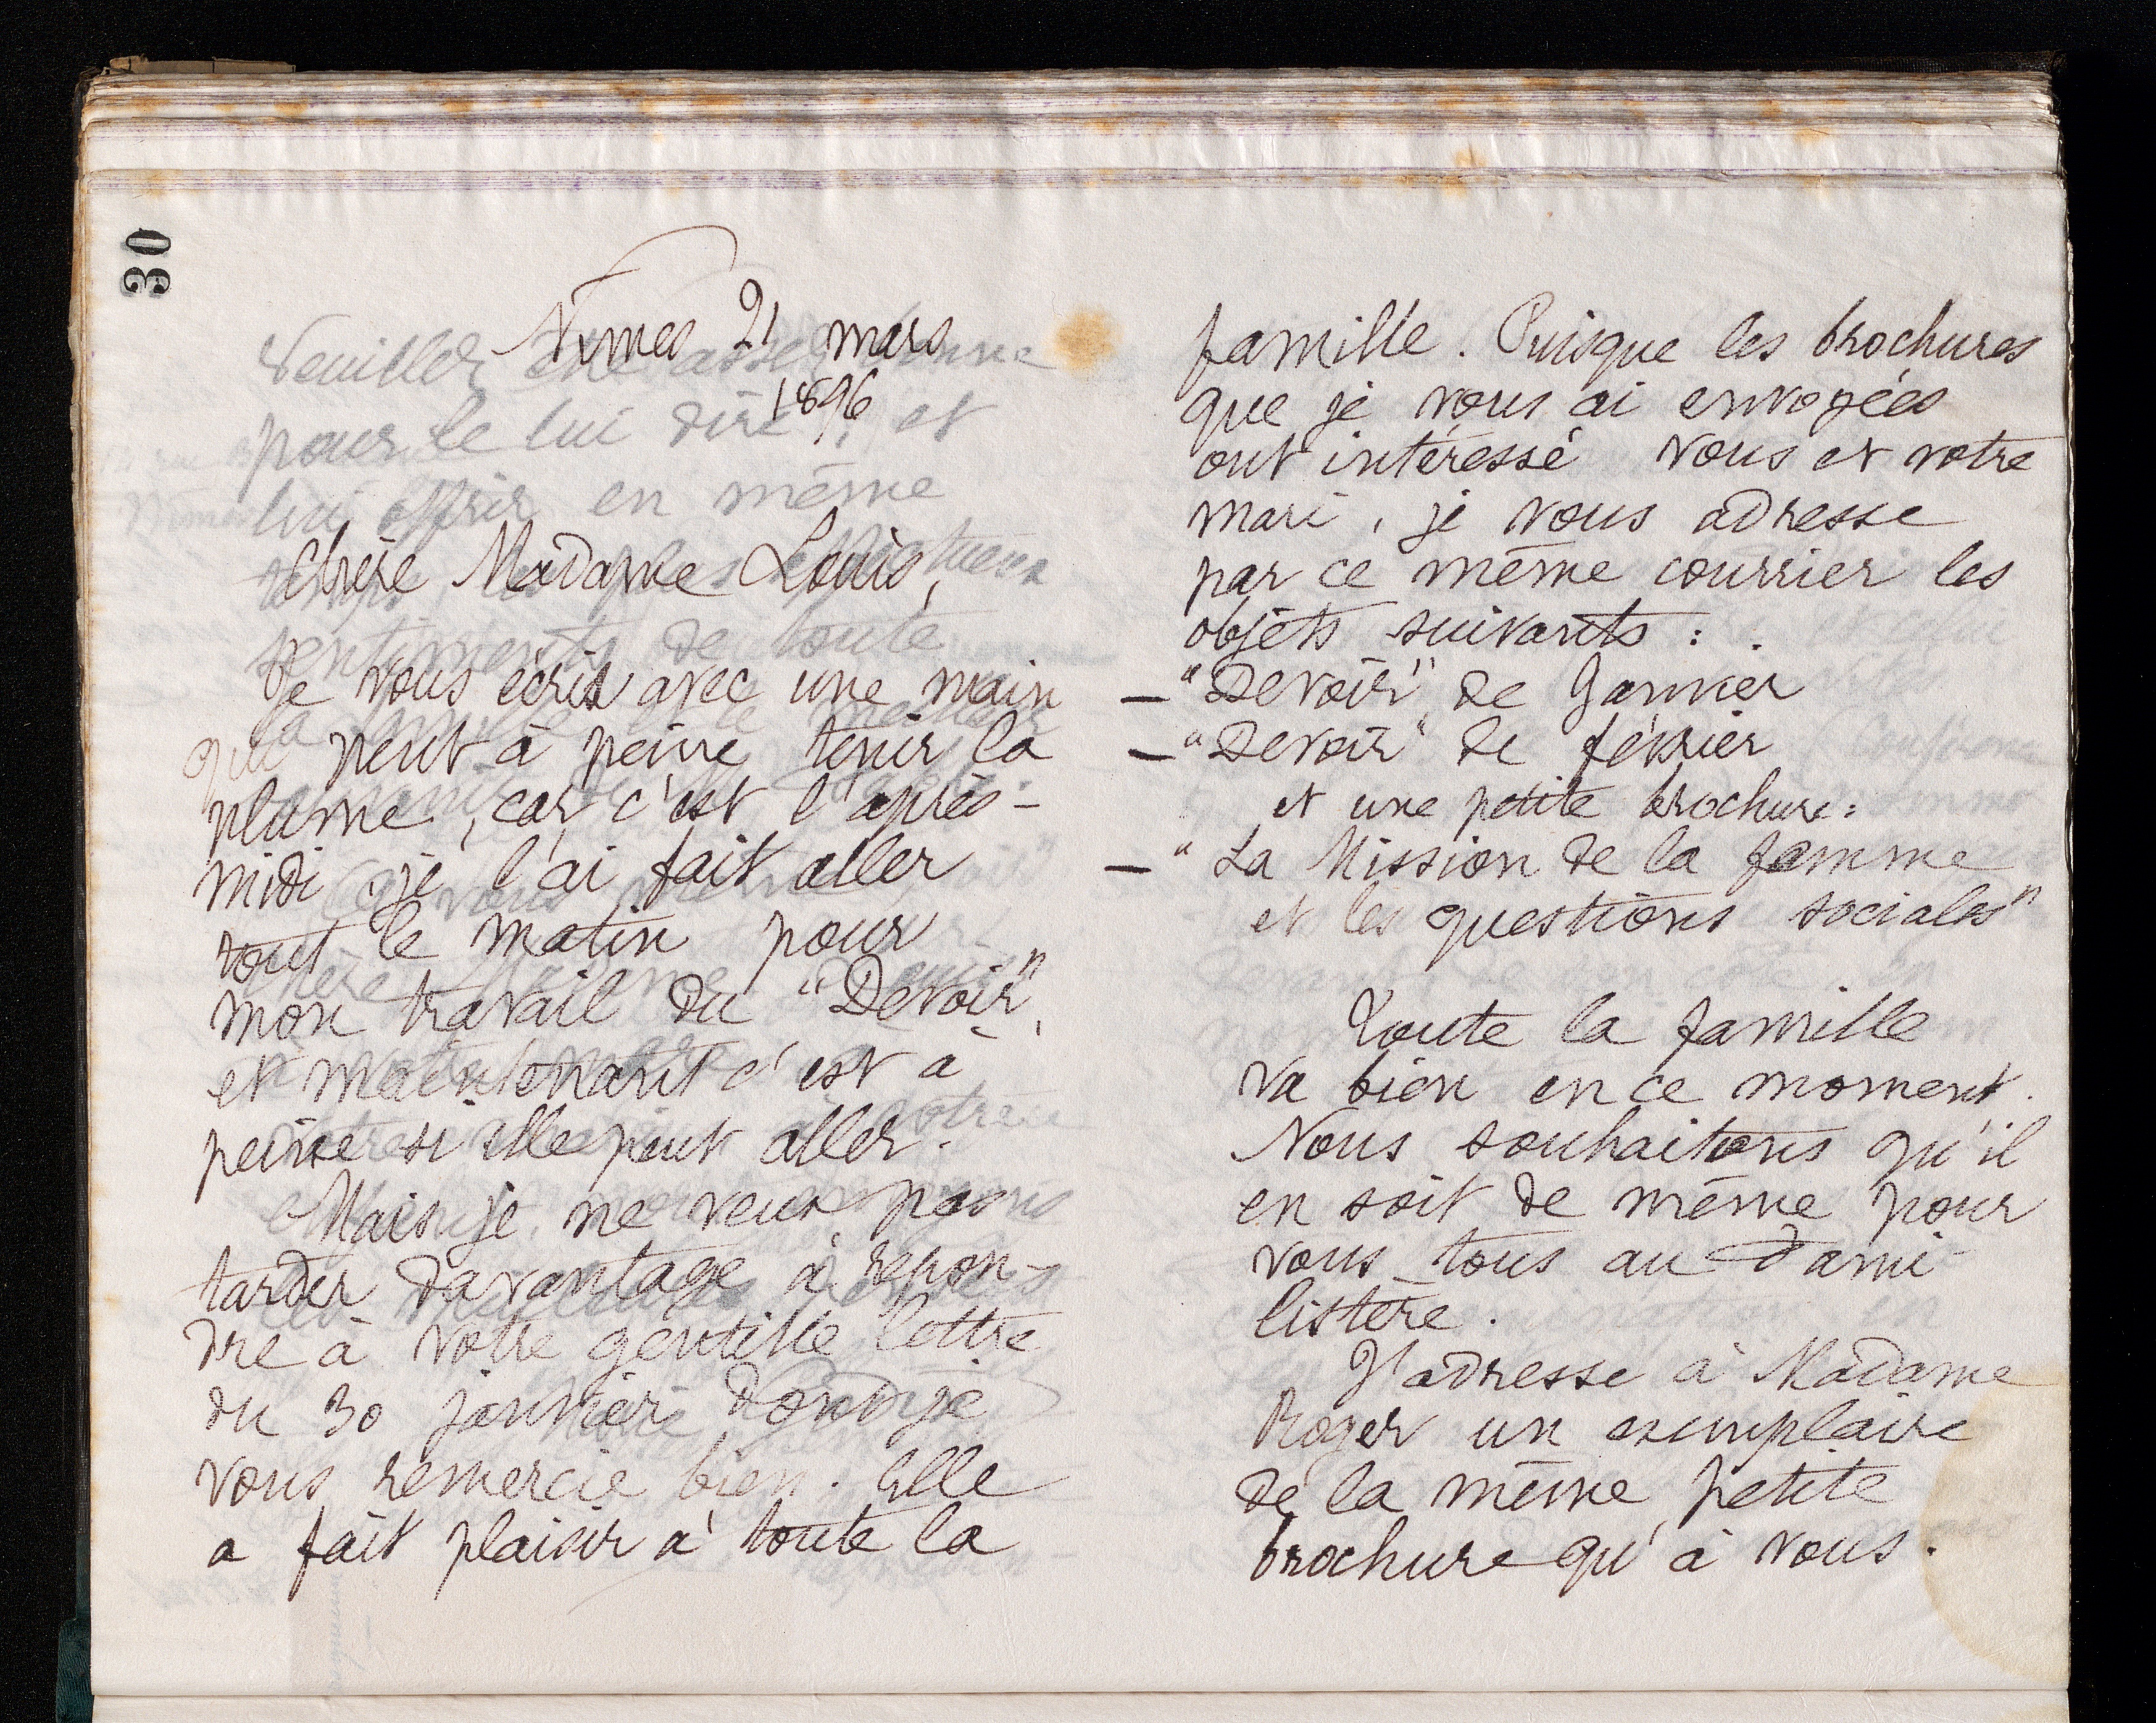 30
Nîmes 21 mars
1896
Chère Madame Louis,
Je vous écris avec une main
qui peut à peine tenir la
plume, car c'est l'après-
midi, je l'ai fait aller
tout le matin pour
mon travail du "Devoir",
et maintenant c'est à
peine si elle peut aller.
Mais je ne veux pas
tarder davantage à répon-
dre à votre gentille lettre
du 30 janvier dont je
vous remercie bien. Elle
a fait plaisir à toute la
famille. Puisque les brochures
que je vous ai envoyées
ont intéressé vous et votre
mari, je vous adresse
par ce même courrier les
objets suivants :
— "Devoir" de Janvier
— "Devoir" de février
et une petite brochure :
— "La Mission de la femme
et les questions sociales"
Toute la famille
va bien en ce moment.
Nous souhaitons qu'il
en soit de même pour
vous tous au Fami-
listère.
J'adresse à Madame
Roger un exemplaire
de la même petite
brochure qu'à vous.